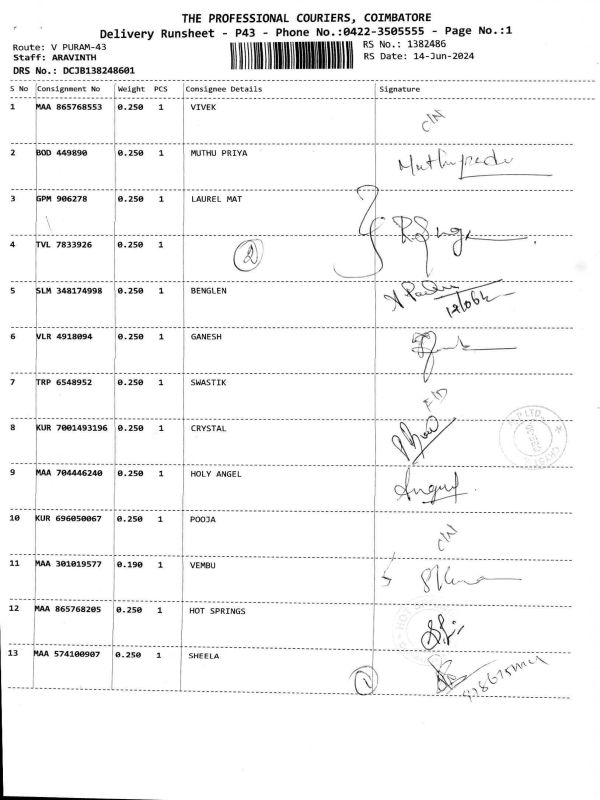 THE PROFESSIONAL COURIERS, COIMBATORE
Delivery Runsheet - P43 - Phone No.:0422-3505555 - Page No.:1
Route: V PURAM-43
RS No.: 1382486
Staff: ARAVINTH
RS Date: 14-Jun-2024
DRS No.: DCJB138248601
S No Consignment No Weight PCS Consignee Details Signature
1 MAA 865768553 0.250 1 VIVEK
C/N
2 BOD 449890 0.250 1 MUTHU PRIYA
3 GPM 906278 0.250 1 LAUREL MAT
4 TVL 7833926 0.250 1
2
5 SLM 348174998 0.250 1 BENGLEN
6 VLR 4918094 0.250 1 GANESH
7 TRP 6548952 0.250 1 SWASTIK
8 KUR 7001493196 0.250 1 CRYSTAL
9 MAA 704446240 0.250 1 HOLY ANGEL
10 KUR 696050067 0.250 1 POOJA
C/N
11 MAA 301019577 0.190 1 VEMBU
12 MAA 865768205 0.250 1 HOT SPRINGS
13 MAA 574100907 0.250 1 SHEELA
1